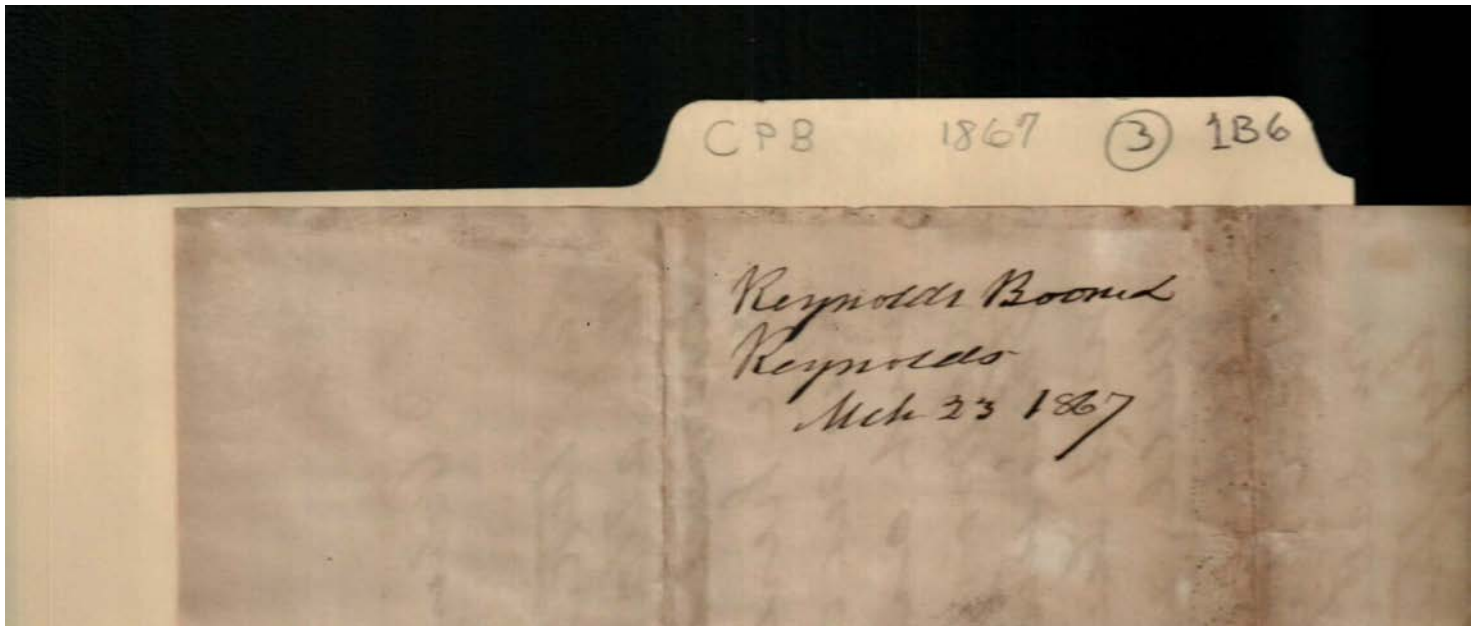 CPB 1867 3 1B6
Reynolds
Reynolds
Mch 23 1867